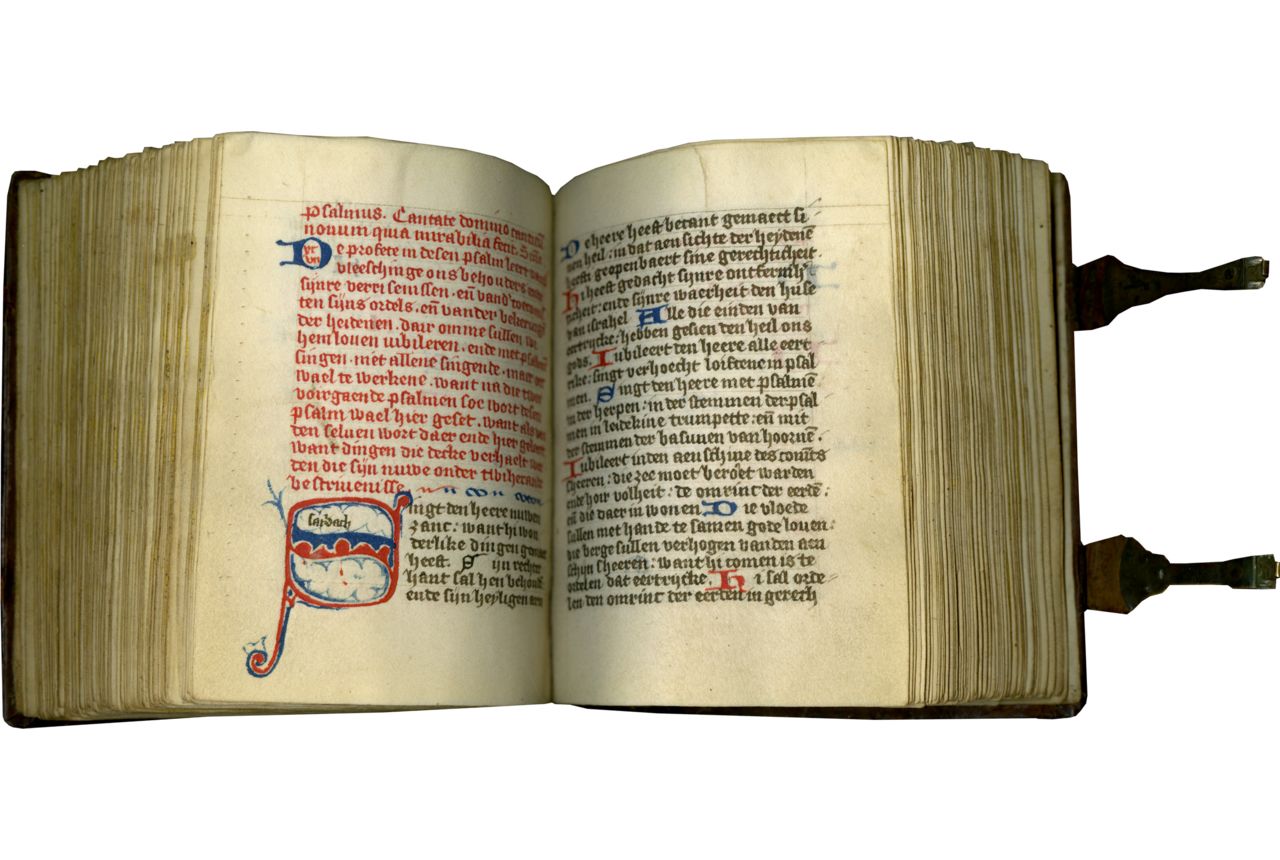 Psalmus. Cantate domino canticū
novum quia mirabilia fecit.
De profete in desen psalm leert
vleeschinge ons behouders ende
sijnre verrisenissen. en̄ vand'
ten sijns ordels. en̄ vander bekeringe
der heidenen. dair omme sullen wi
hem loven iubileren. ende met psalmen
singen. met allene singende. maer oec
wael te werkene. want na die twee
voirgaende psalmen soe wort desen
psalm wael hier geset. want als van
den selven wort daer ende hier geleert
want dingen die decke verhaelt
den die sijn nuwe onder
bescrivenisse
xcvij
saterdach
Singt den heere nuwen
zanc: want hi won
derlike dingen gemaect
heeft. Sijn rechter
hant sal hen behouden
ende sijn heyligen arm
De heere heeft becant gemaect si
nen heil: in dat aensichte der heydenē
heeft geopenbaert sine gerechticheit.
Hi heeft gedacht sijnre ontfermh'
ticheit: ende sijnre waerheit den huse
van israhel Alle die einden van
eertrijcke: hebben gesien den heil ons
gods. Iubileert den heere alle eert
rike: singt verhoecht loift ende in psal
men. Singt den heere met psalmē
in der herpen: in der stemmen der psal
men in leidekine trumpette: en̄ mit
der stemmen der basunen van hoornē.
Iubileert in den aenschine des conīcs
sheeren: die zee moet beroēt warden
ende hoir volheit: de omrinc der eerdē:
en̄ die daer in wonen Die vloede
sullen met hande te samen gode loven:
die berge sullen verhogen van den aen
schijn sheeren: want hi comen is te
ordelen dat eertrijcke. Hi sal orde
len den omrinc der eerden in gerech